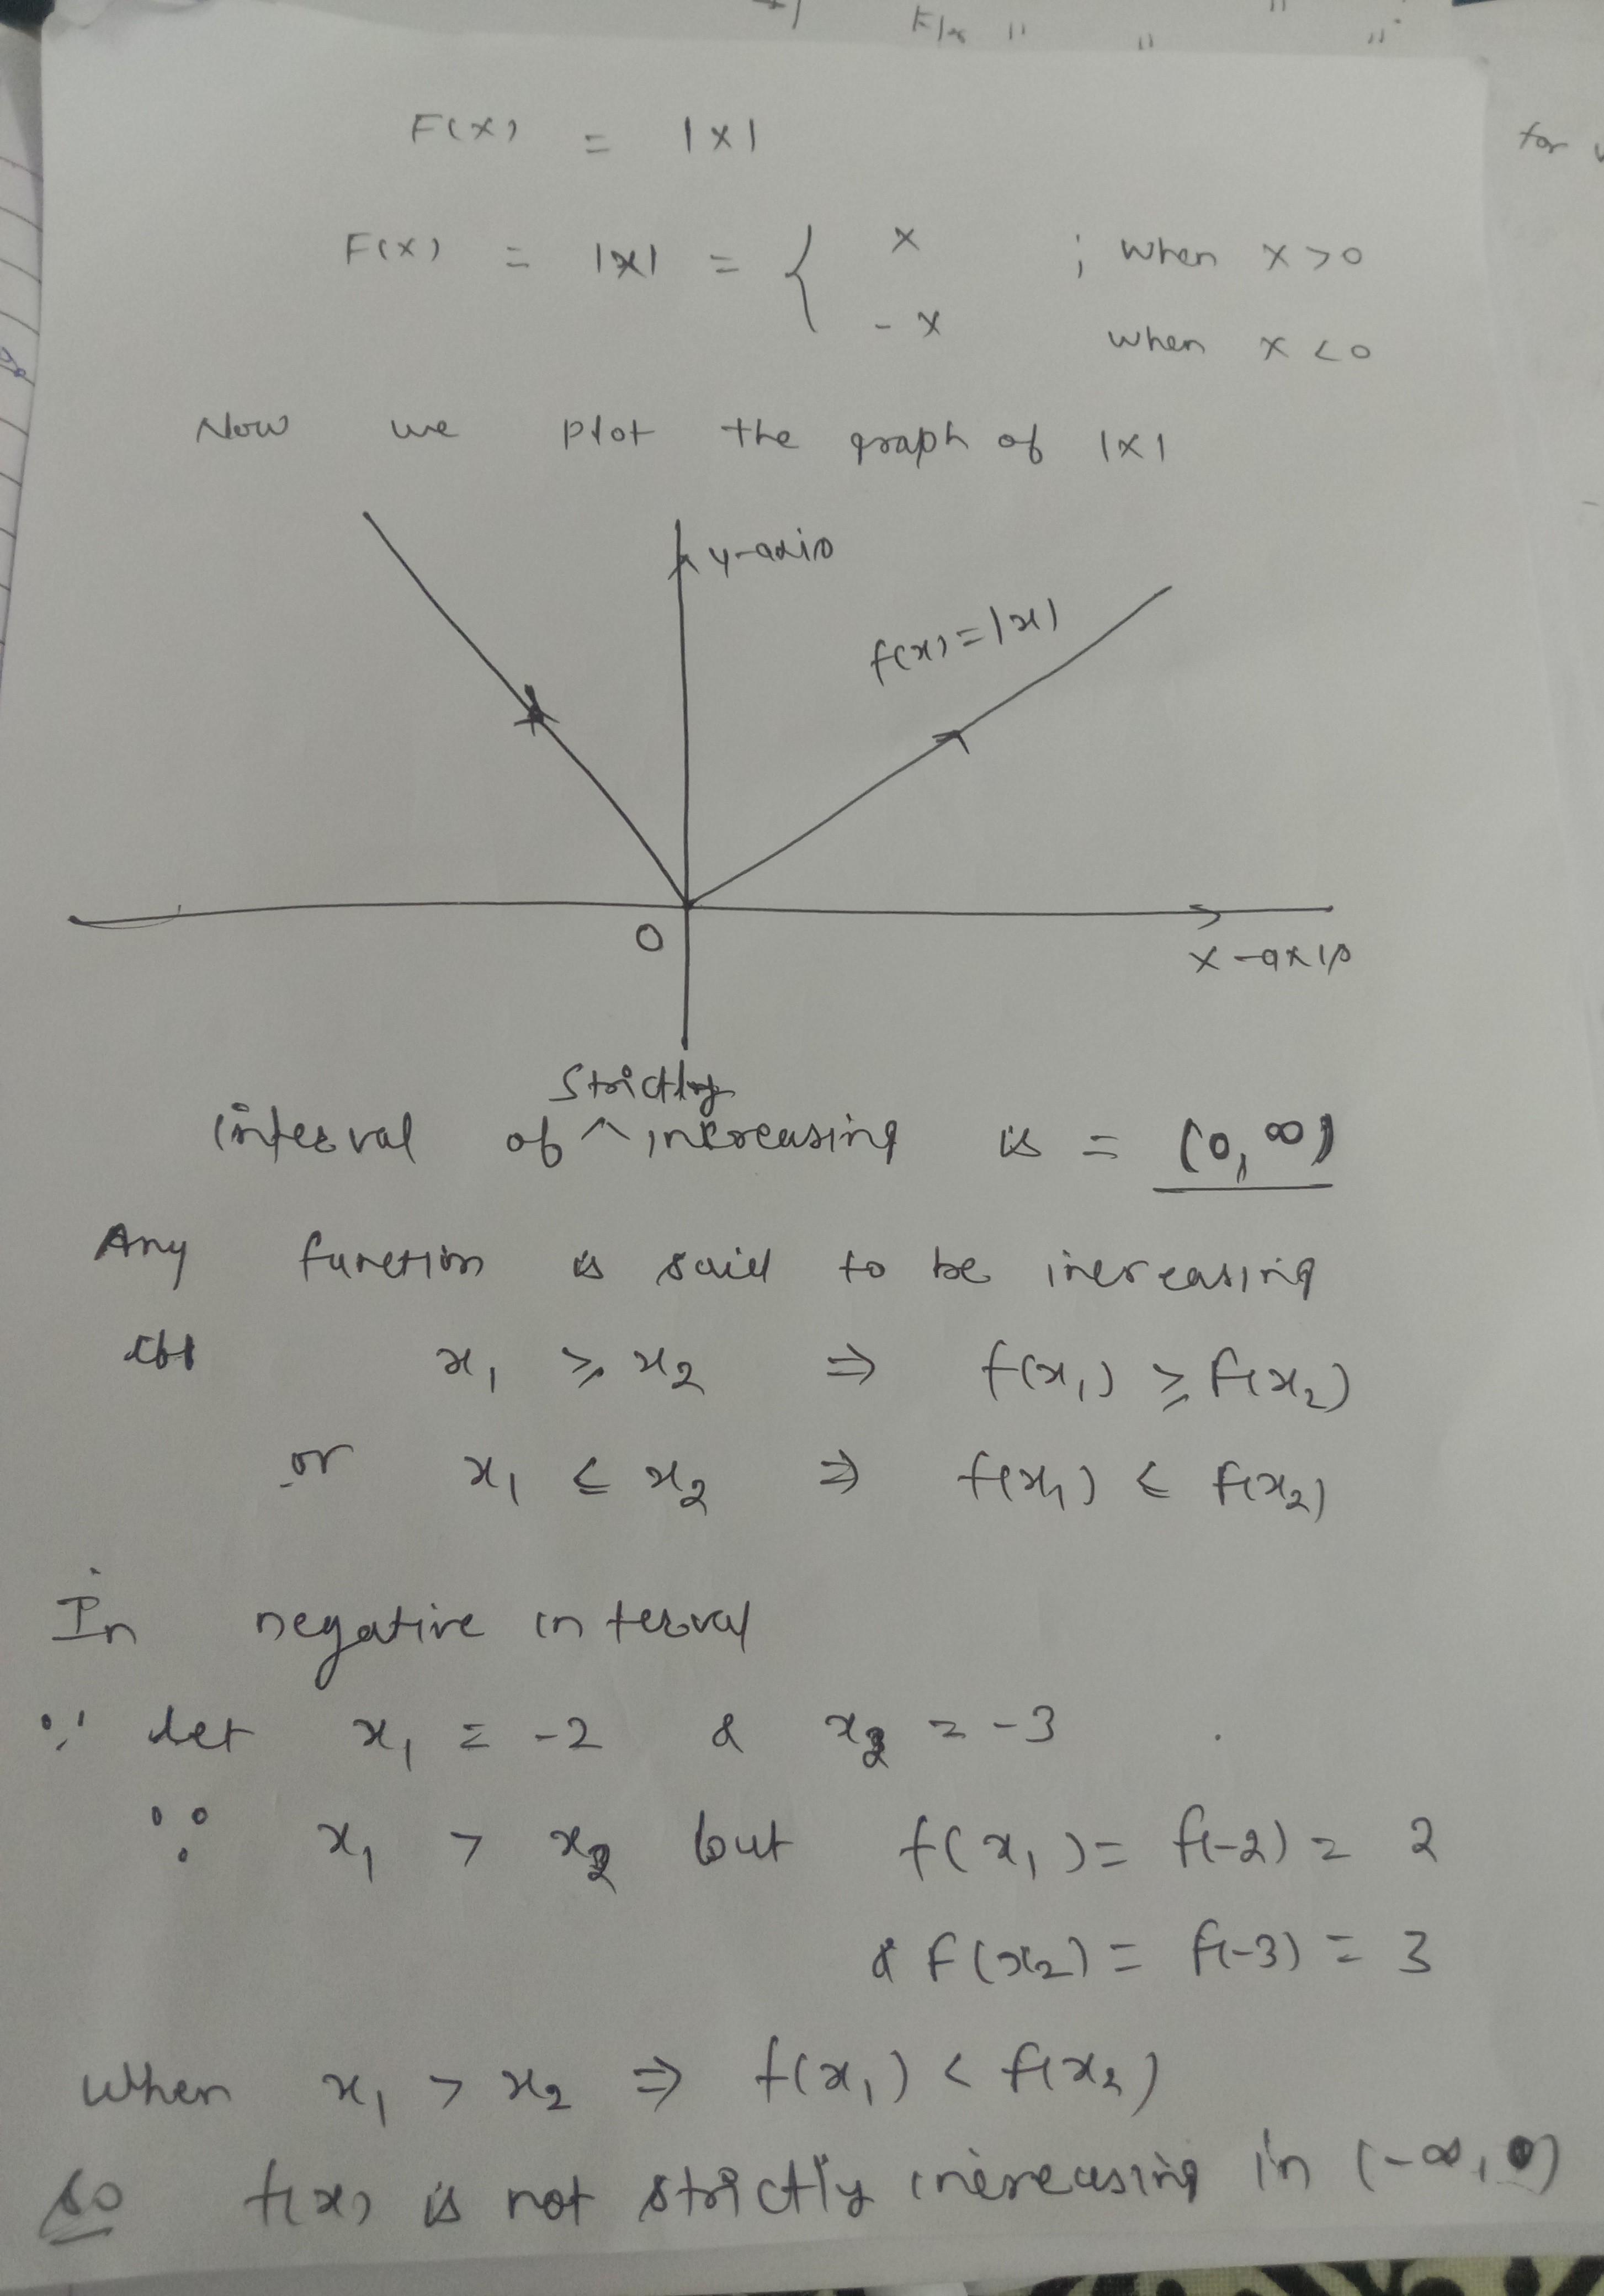 F/x " " " "
for
F(x) = |x|
F(x) = |x| = { x ; when x>0
- x when x<0
Now we plot the graph of |x|
y-axis
f(x)=|x|
O
x-axis
Strictly
interval of ^ increasing is = (0,∞)
Any function is said to be increasing
x₁ ≥ x₂ ⇒ f(x₁) ≥ f(x₂)
or x₁ ≤ x₂ ⇒ f(x₁) ≤ f(x₂)
In negative interval
∵ let x₁ = -2 & x₂ = -3
∵ x₁ > x₂ but f(x₁) = f(-2) = 2
& f(x₂) = f(-3) = 3
When x₁ > x₂ ⇒ f(x₁) < f(x₂)
So f(x) is not strictly increasing in (-∞,0)